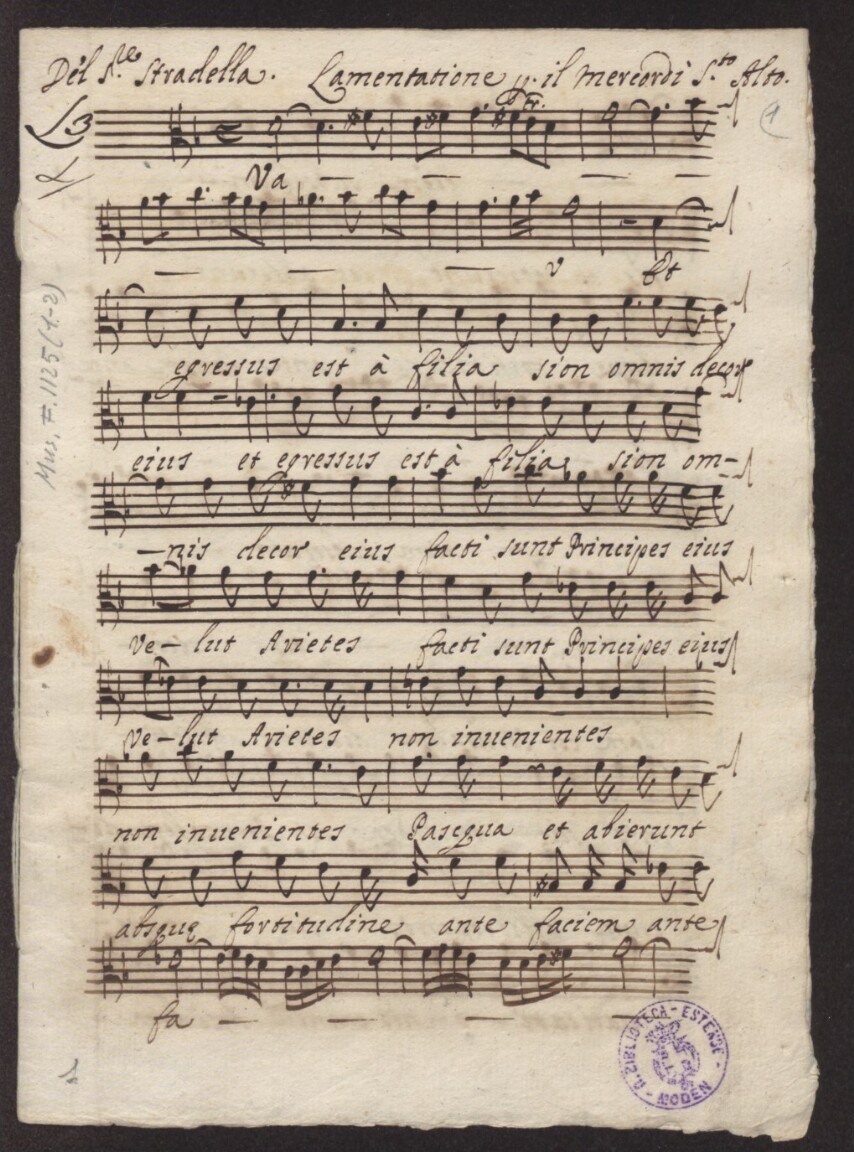 Del S.re Stradella. Lamentatione p. il mercordi S.to Alto.
L3
1
Va
v Et
egressus est à filia sion omnis decor
eius et egressus est à filia sion om-
-nis decor eius facti sunt Principes eius
ve-lut Arietes facti sunt Principes eius
ve-lut Arietes non inuenientes
non inuenientes Pascqua et abierunt
absque fortitudine ante faciem ante
fa
Mus. F. 1125 (1-2)
BIBLIOTECA - ESTENSE - MODEN